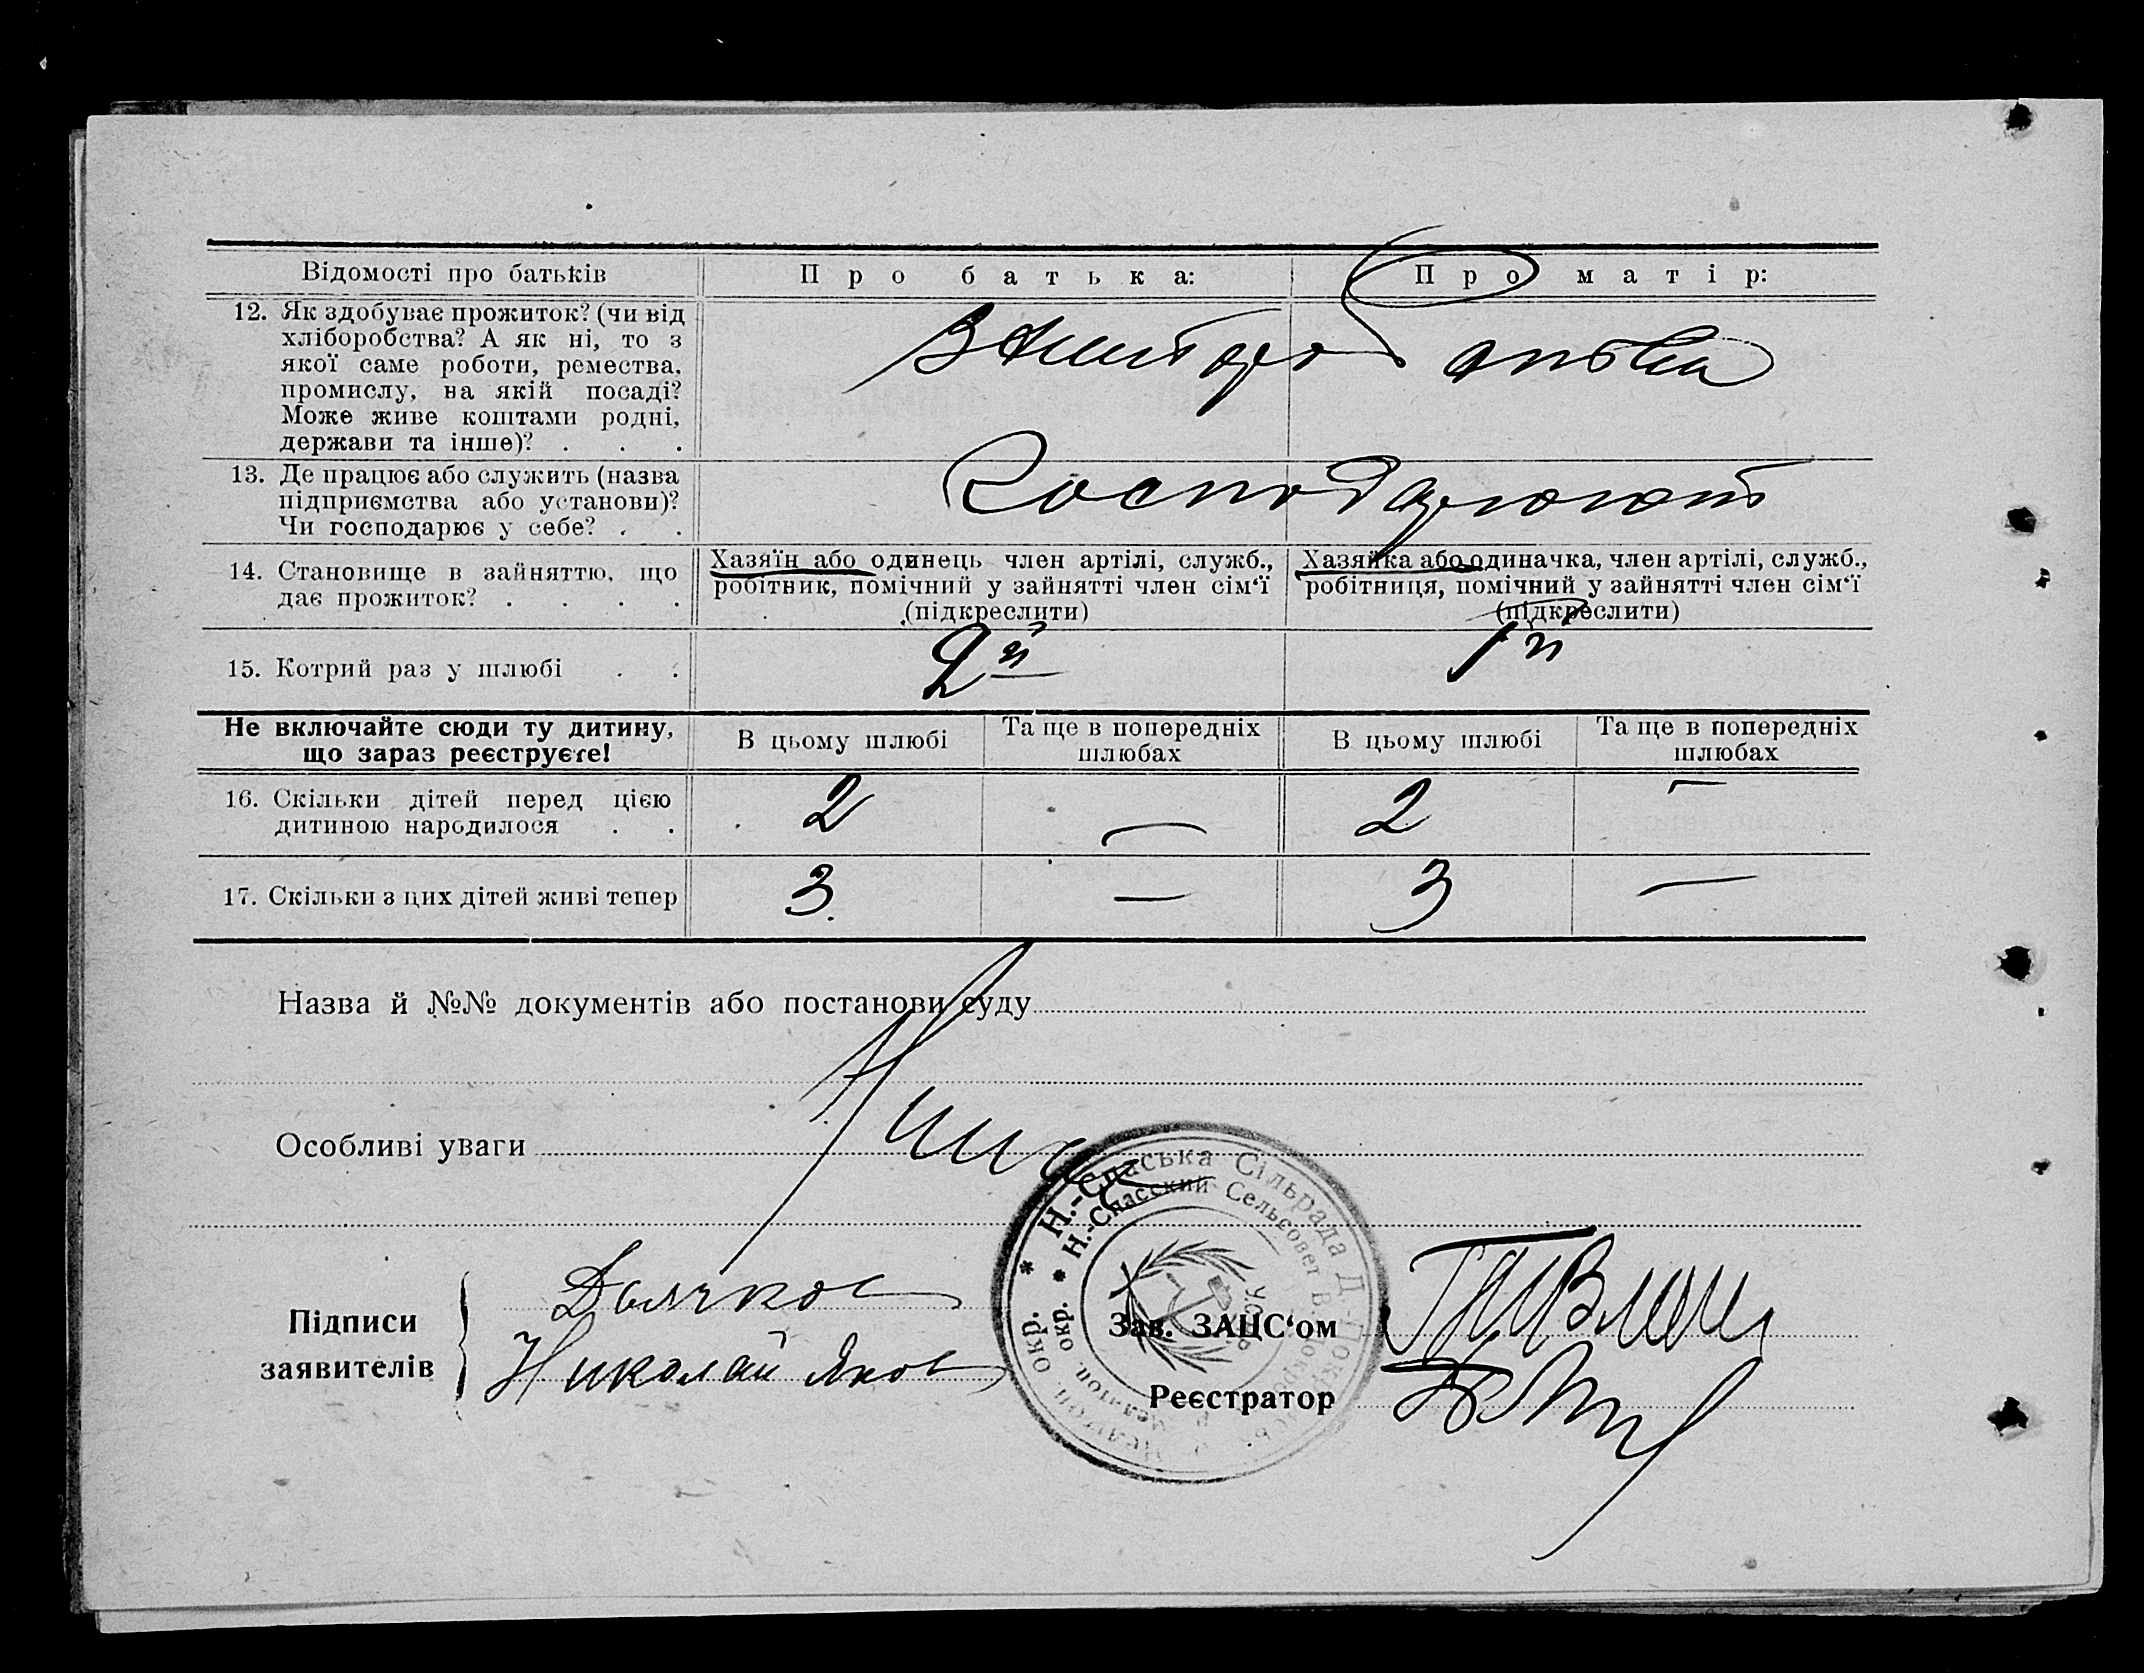 Відомості про батьків
Про батька:
Про матір:
12. Як здобуває прожиток? (чи від
хліборобства? А як ні, то з
якої саме роботи, ремества,
промислу, на якій посаді?
Може живе коштами родні,
держави та інше)? . . .
13. Де працює або служить (назва
підприємства або установи)?
Чи господарює у себе? . .
Господарюють
14. Становище в зайняттю, що
дає прожиток? . . . .
Хазяїн або одинець член артілі, служб.,
робітник, помічний у зайнятті член сім'ї
(підкреслити)
Хазяйка або одиначка, член артілі, служб.,
робітниця, помічний у зайнятті член сім'ї
(підкреслити)
15. Котрий раз у шлюбі . .
2й
1й
Не включайте сюди ту дитину,
що зараз реєструєте!
В цьому шлюбі
Та ще в попередніх
шлюбах
В цьому шлюбі
Та ще в попередніх
шлюбах
16. Скільки дітей перед цією
дитиною народилося . .
2
—
2
—
17. Скільки з цих дітей живі тепер
3
—
3
—
Назва й №№ документів або постанови суду
Особливі уваги
Підписи
заявителів
Николай Яков
Зав. ЗАЦС'ом
Реєстратор
* Н.-Спаська Сільрада
* Н.-Спасский Сельсовет
окр.
окр.